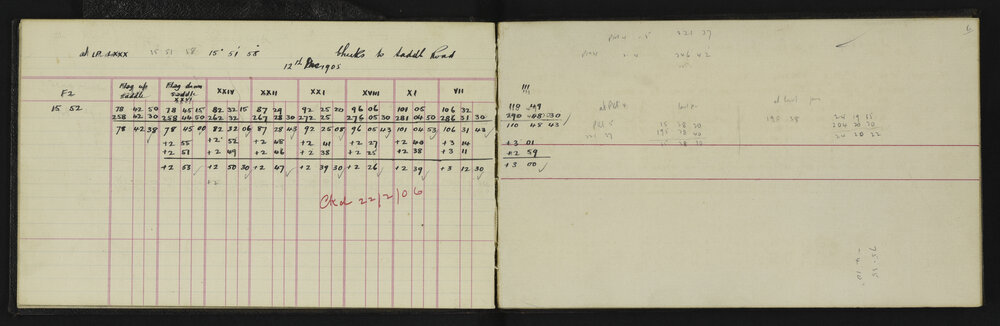 at I.P. LXXX 15 51 58 15° 51' 58" Checks to Saddle Road
12th Dec 1905
F2 Flag up saddle Flag down saddle XXVI XXIV XXII XXI XVIII XI VII III
15 52 78 42 50 78 45 15 82 32 15 87 29 92 25 20 96 06 101 05 106 32 110 49
258 42 30 258 44 50 262 32 267 28 30 272 25 276 05 30 281 04 50 286 31 30 290 48 30
78 42 38 78 45 00 82 32 06 87 28 43 92 25 08 96 05 43 101 04 53 106 31 43 110 48 43
+2 55 +2 52 +2 48 +2 41 +2 27 +2 40 +3 14 +3 01
+2 51 +2 49 +2 46 +2 38 +2 25 +2 38 +3 11 +2 59
+2 53 +2 50 30 +2 47 +2 39 30 +2 26 +2 39 +3 12 30 +3 00
+2
Ckd 22/2/06
6
321 27
15 38 20
195 38 40
15 38 10
195 38
24 19 55
204 20 20
24 20 22
75 55